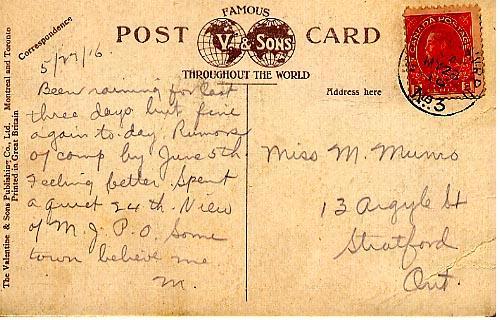 FAMOUS
POST CARD
V. & SONS
THROUGHOUT THE WORLD
CANADA POSTAGE
No 3
Correspondence
Address here
The Valentine & Sons Publishing Co., Ltd., Montreal and Toronto
Printed in Great Britain
5/27/16.
Been raining for last
three days but fine
again to-day. Rumors
of camp by June 5th.
Feeling better. Spent
a quiet 24th. View
of M. J. P. O. Some
town believe me
M.
Miss M. Munro
13 Argyle St
Stratford
Ont.